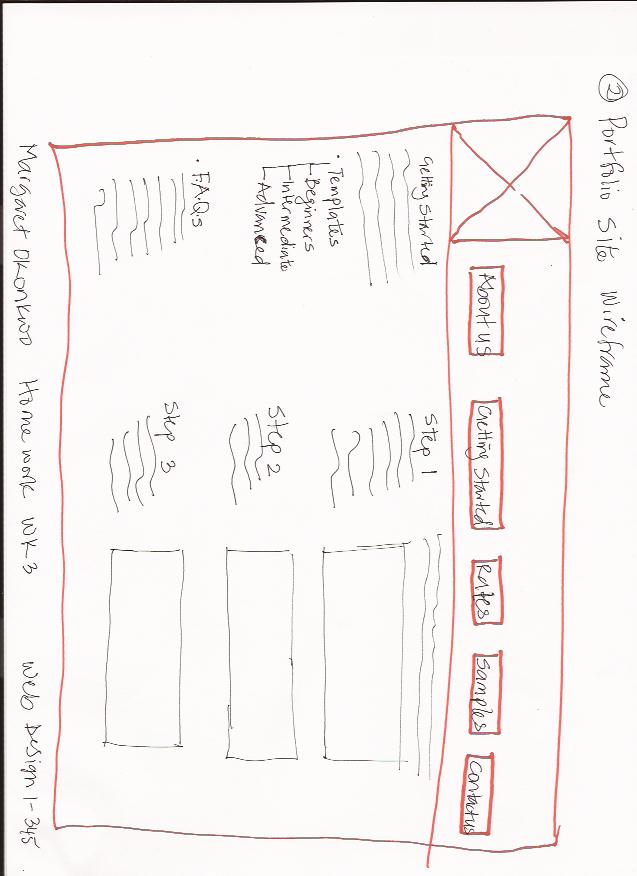 ② Portfolio Site Wireframe
About us
Getting Started
Rates
Samples
Contact us
Getting Started
• Templates
Beginners
Intermediate
Advanced
• F.A.Q.s
Step 1
Step 2
Step 3
Margaret Okonkwo Homework WK-3 Web Design 1-345